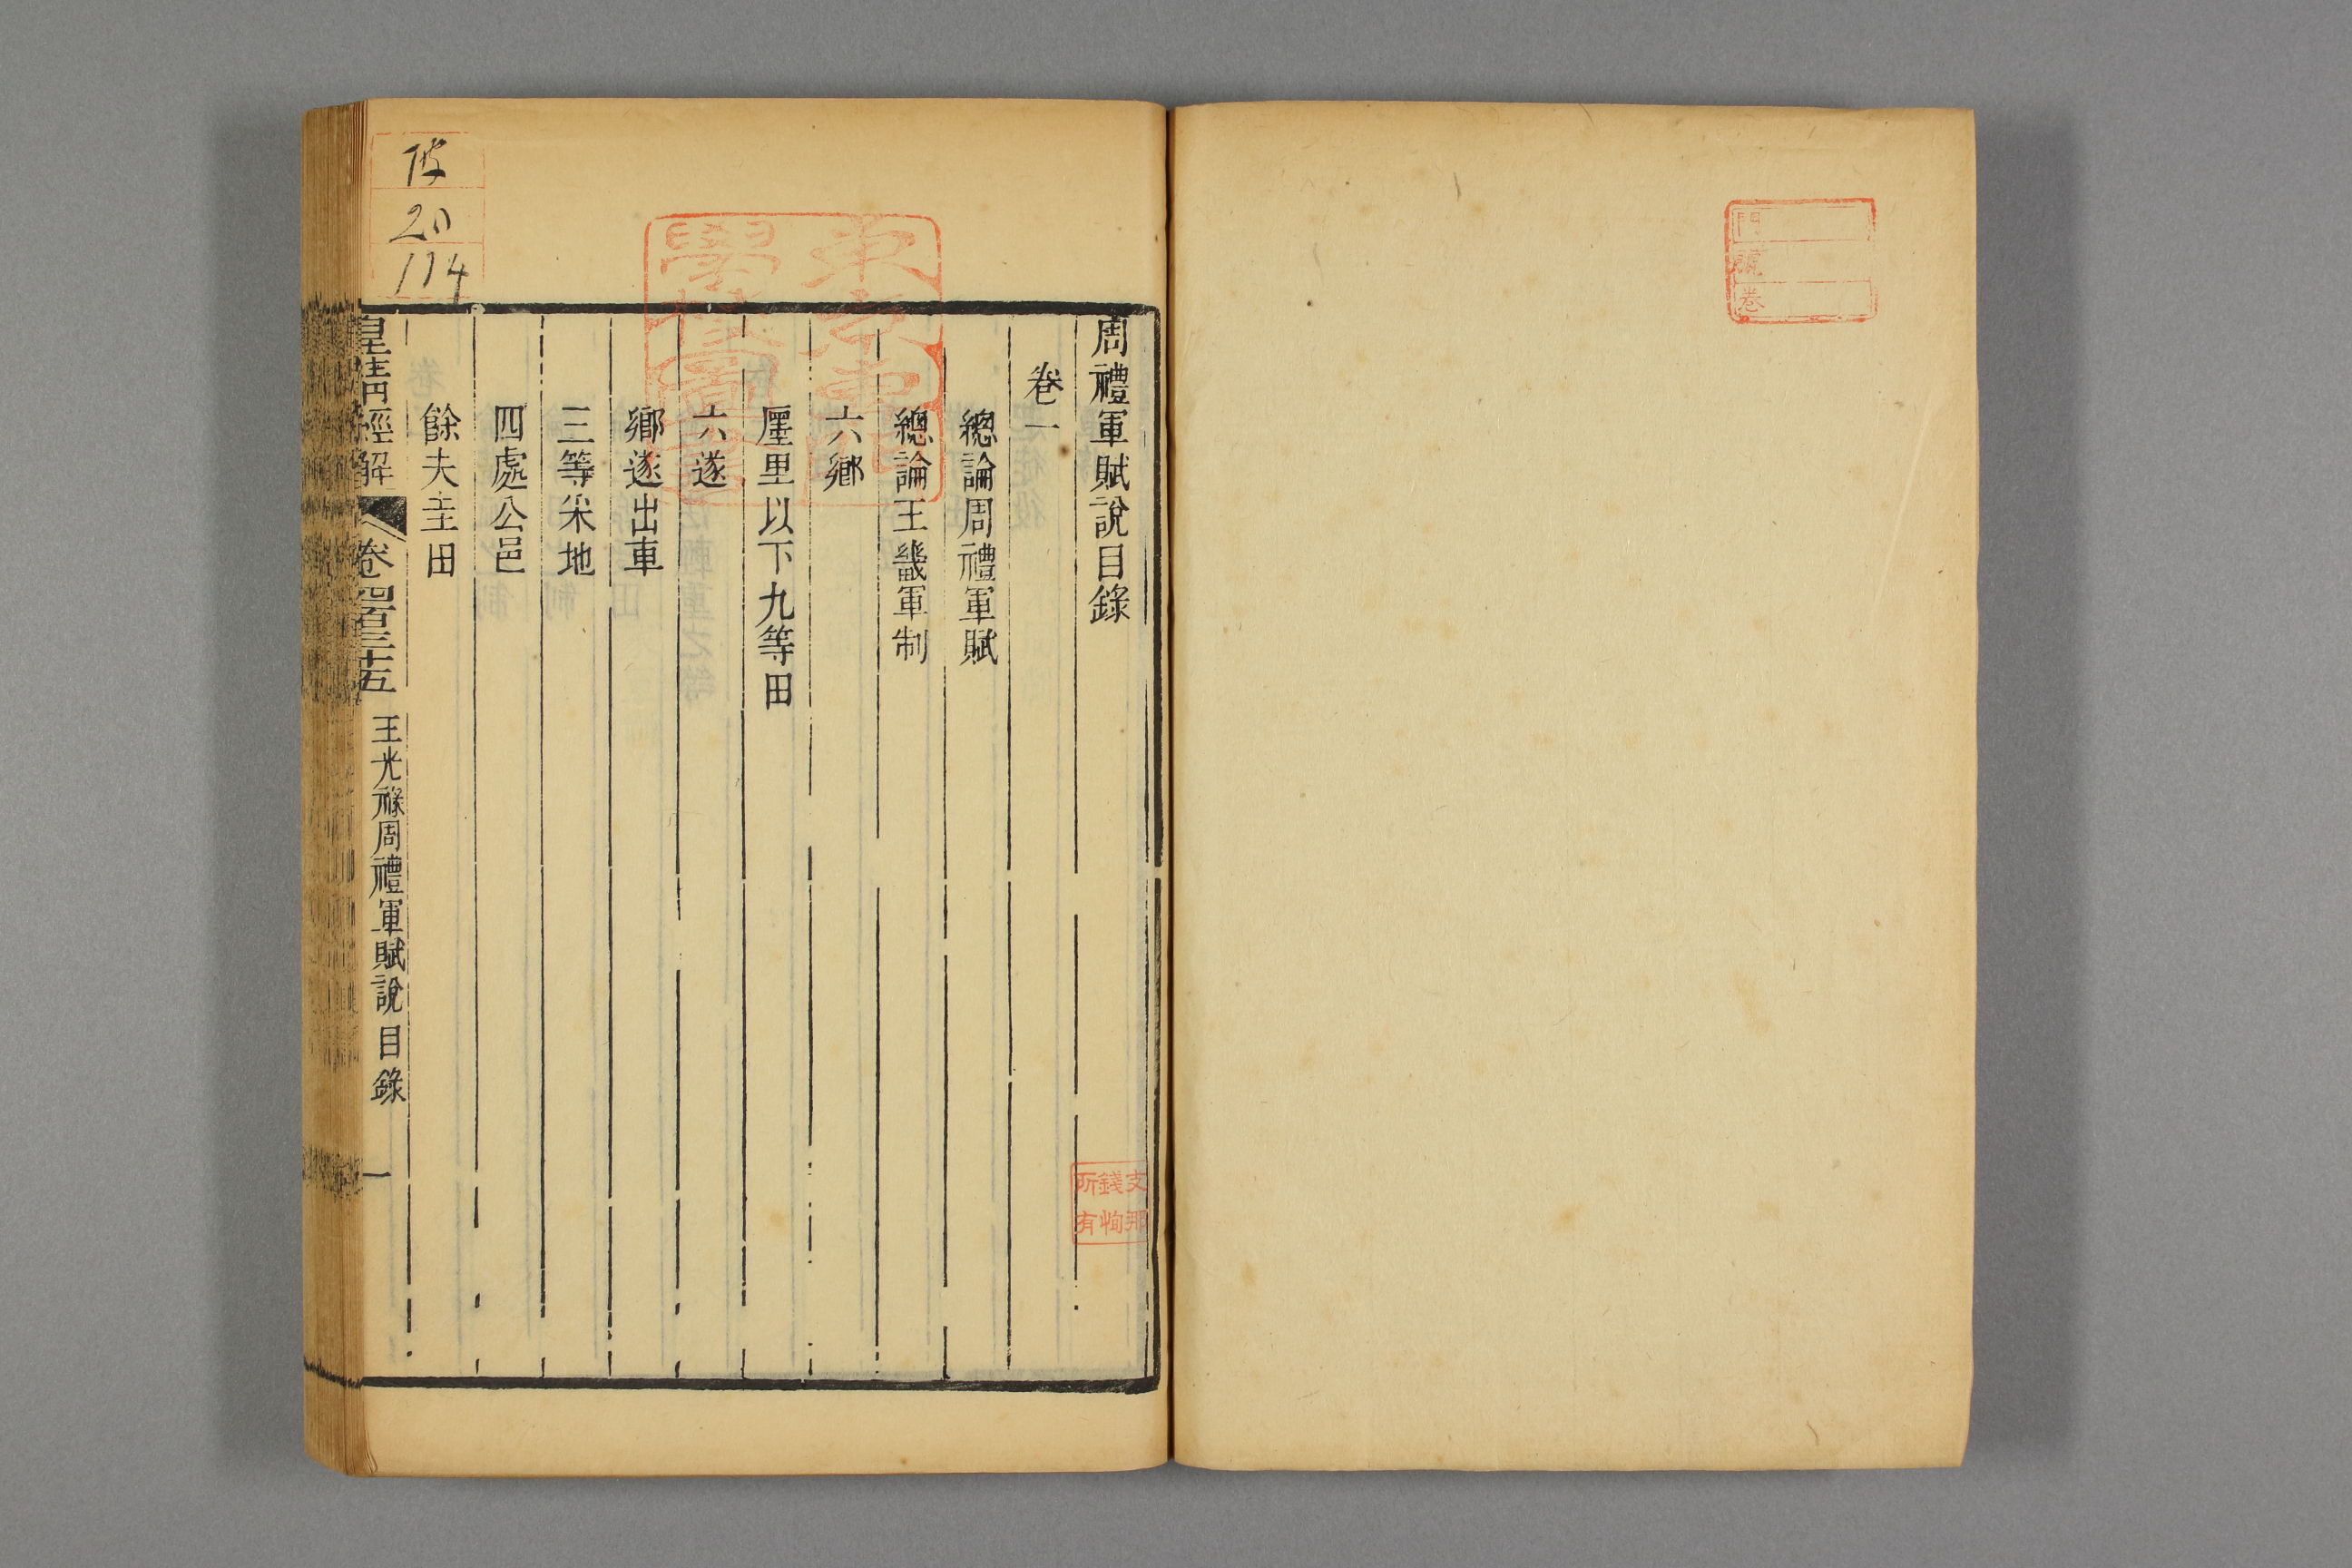 門
號
卷
周禮軍賦說目錄
卷一
總論周禮軍賦
總論王畿軍制
六鄉
廛里以下九等田
六遂
鄉遂出車
三等采地
四處公邑
餘夫圭田
皇淸經解
卷四百三十五
王光祿周禮軍賦說目錄
一
支那
錢恂
所有
20
114